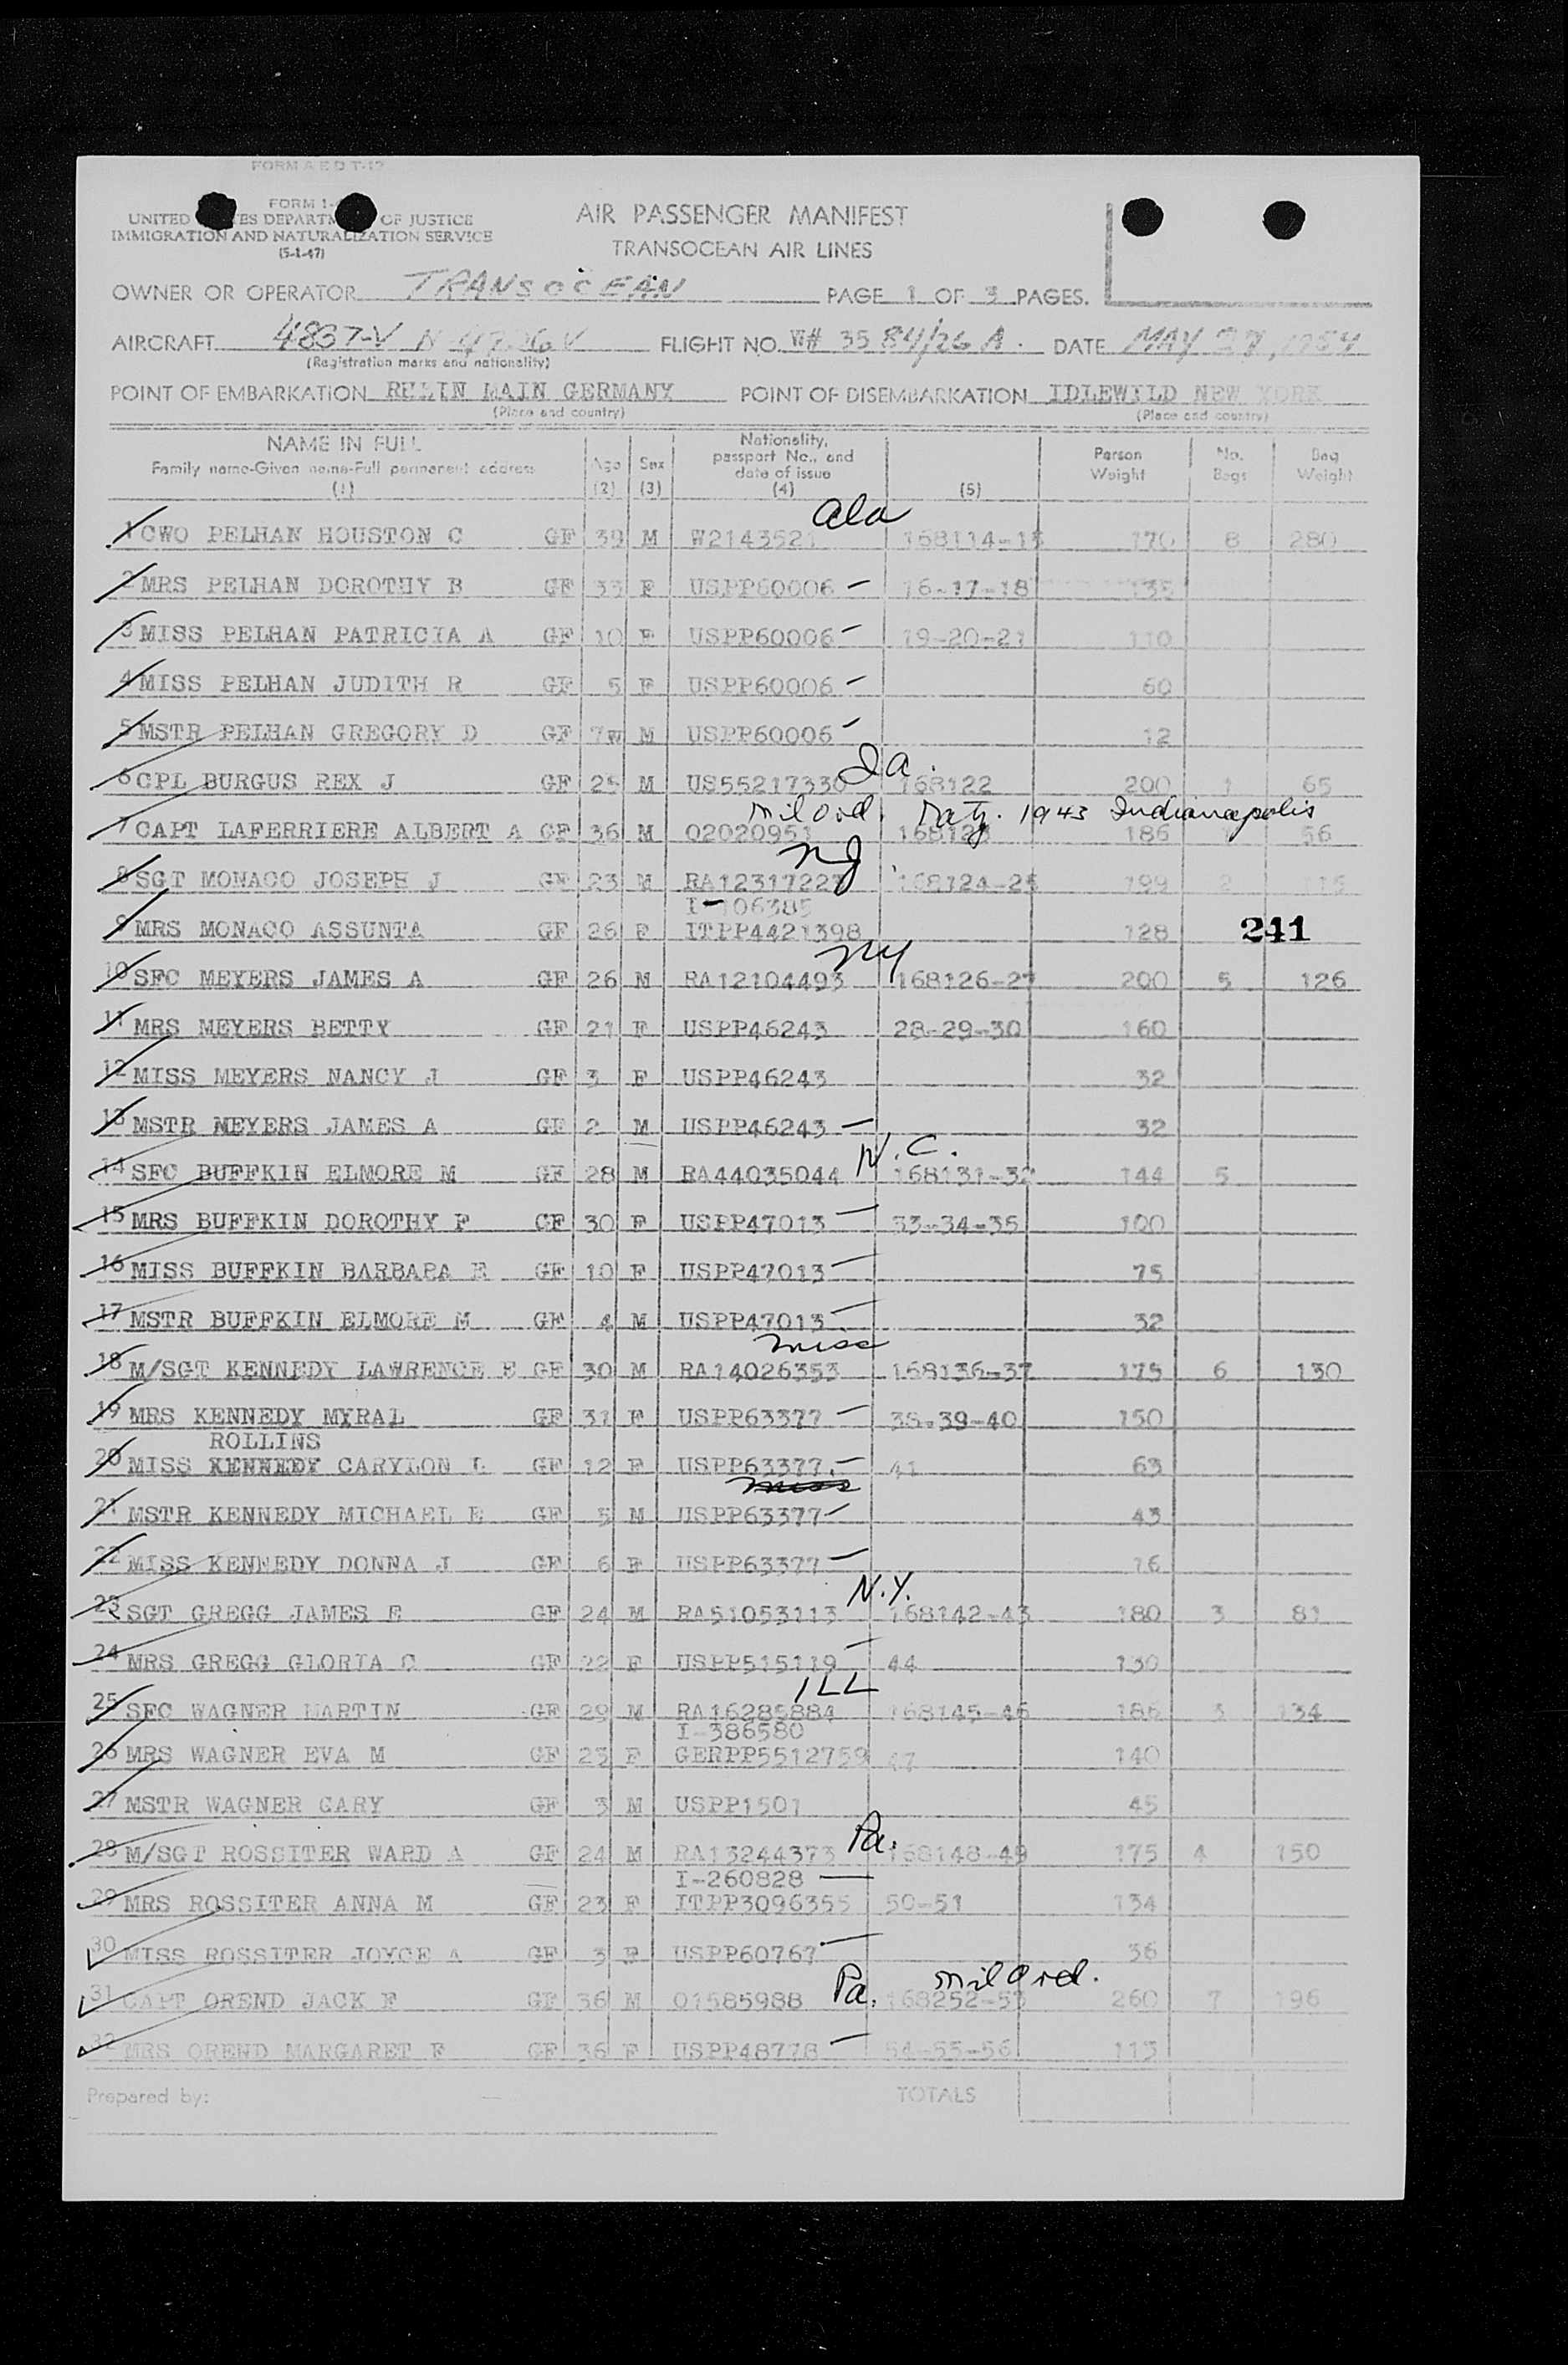 FORM A E D T-12
FORM 1-
UNITED STATES DEPARTMENT OF JUSTICE
IMMIGRATION AND NATURALIZATION SERVICE
(5-1-47)
AIR PASSENGER MANIFEST
TRANSOCEAN AIR LINES
OWNER OR OPERATOR TRANSOCEAN PAGE 1 OF 3 PAGES.
AIRCRAFT 4837-V N-4726V FLIGHT NO. W# 35 84/26 A. DATE MAY 27, 1954
(Registration marks and nationality)
POINT OF EMBARKATION RHEIN MAIN GERMANY POINT OF DISEMBARKATION IDLEWILD NEW YORK
(Place and country) (Place and country)
NAME IN FULL
Family name-Given name-Full permanent address
(1)
Age
(2)
Sex
(3)
Nationality,
passport No., and
date of issue
(4)
(5)
Person
Weight
No.
Bags
Bag
Weight
Ala
1 CWO PELHAN HOUSTON C GF 39 M W2143521 168114-15 170 8 280
2 MRS PELHAN DOROTHY B GF 33 F USPP60006 — 16-17-18 135
3 MISS PELHAN PATRICIA A GF 10 F USPP60006 — 19-20-21 110
4 MISS PELHAN JUDITH R GF 5 F USPP60006 — 60
5 MSTR PELHAN GREGORY D GF 7w M USPP60006 — 12
Ia.
6 CPL BURGUS REX J GF 25 M US55217330 168122 200 1 65
mil Ord. Natz. 1943 Indianapolis
7 CAPT LAFERRIERE ALBERT A GF 36 M O2020951 168123 186 1 56
NJ
8 SGT MONACO JOSEPH J GF 23 M RA12317223 168124-25 199 2 115
I-106385
9 MRS MONACO ASSUNTA GF 26 F ITPP4421398 128 241
NY
10 SFC MEYERS JAMES A GF 26 M RA12104493 168126-27 200 5 126
11 MRS MEYERS BETTY GF 21 F USPP46243 28-29-30 160
12 MISS MEYERS NANCY J GF 3 F USPP46243 32
13 MSTR MEYERS JAMES A GF 2 M USPP46243 — 32
N.C.
14 SFC BUFFKIN ELMORE M GF 28 M RA44035044 168131-32 144 5
15 MRS BUFFKIN DOROTHY F GF 30 F USPP47013 — 33-34-35 100
16 MISS BUFFKIN BARBARA E GF 10 F USPP47013 — 75
17 MSTR BUFFKIN ELMORE M GF 4 M USPP47013 — 32
Miss
18 M/SGT KENNEDY LAWRENCE E GF 30 M RA14026353 168136-37 175 6 130
19 MRS KENNEDY MYRAL GF 31 F USPP63377 — 38-39-40 150
ROLLINS
20 MISS KENNEDY CARYLON L GF 12 F USPP63377. — 41 63
Miss
21 MSTR KENNEDY MICHAEL E GF 5 M USPP63377 — 43
22 MISS KENNEDY DONNA J GF 6 F USPP63377 — 16
N.Y.
23 SGT GREGG JAMES E GF 24 M RA51053113 168142-43 180 3 81
24 MRS GREGG GLORIA C GF 22 F USPP515119 — 44 130
ILL
25 SFC WAGNER MARTIN GF 29 M RA16285884 168145-46 186 3 134
I-386580
26 MRS WAGNER EVA M GF 23 F GERPP5512759 47 140
27 MSTR WAGNER GARY GF 3 M USPP1501 45
Pa.
28 M/SGT ROSSITER WARD A GF 24 M RA13244373 168148-49 175 4 150
I-260828 —
29 MRS ROSSITER ANNA M GF 23 F ITPP3096355 50-51 134
30 MISS ROSSITER JOYCE A GF 3 F USPP60767 — 36
Pa. mil Ord.
31 CAPT OREND JACK F GF 36 M O1585988 168252-53 260 7 196
32 MRS OREND MARGARET F GF 36 F USPP48778 — 54-55-56 113
Prepared by: TOTALS